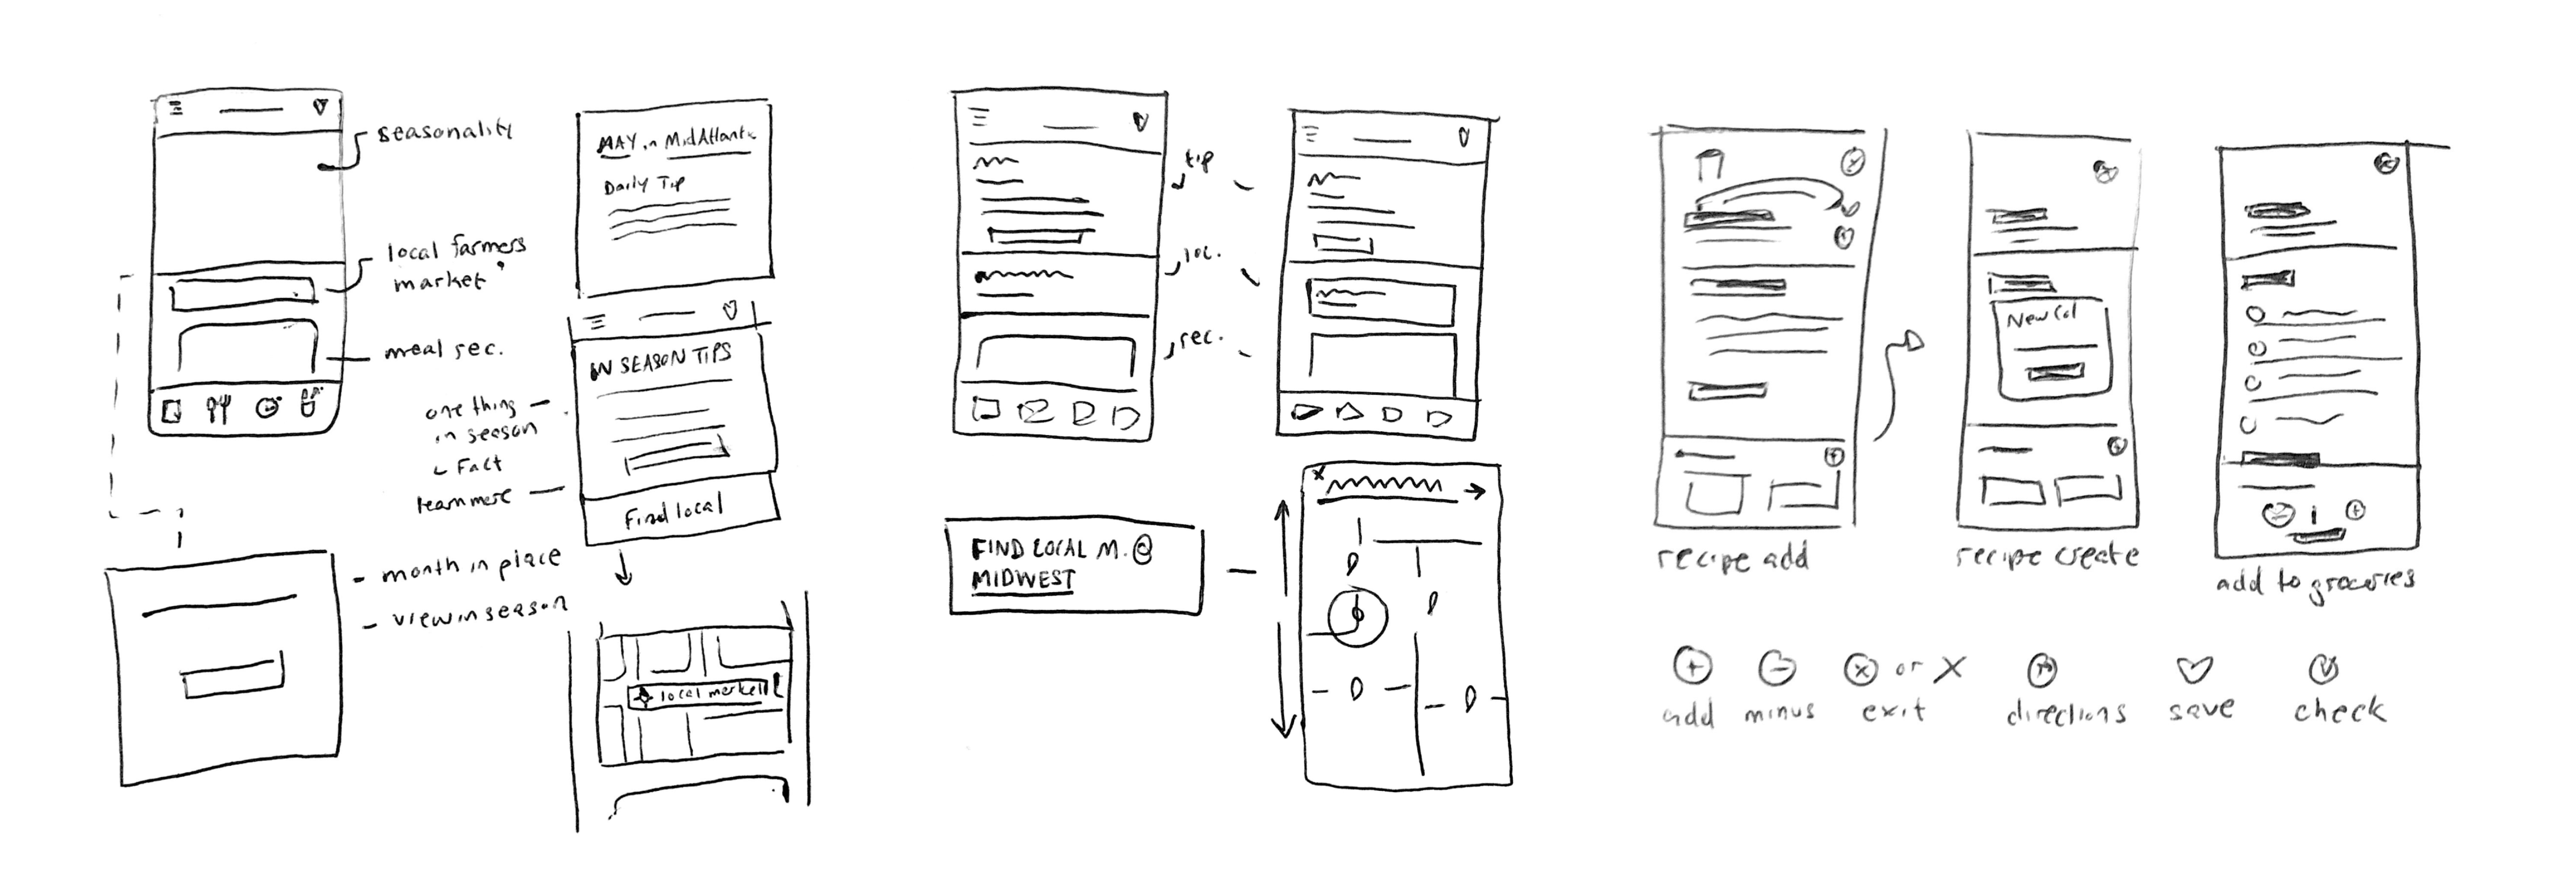 seasonality
local farmers
market
meal rec.
month in place
view in season
MAY in MidAtlantic
Daily Tip
IN SEASON TIPS
one thing
in season
Fact
learn more
Find local
local market
tip
loc.
rec.
FIND LOCAL M. @
MIDWEST
New Col
recipe add
recipe create
add to groceries
or X
add minus exit directions save check